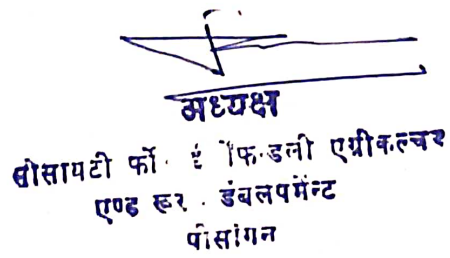 अध्यक्ष
सोसायटी फॉ डली एग्रीकल्चर
एण्ड रूर डंवलपमेन्ट
पीसांगन